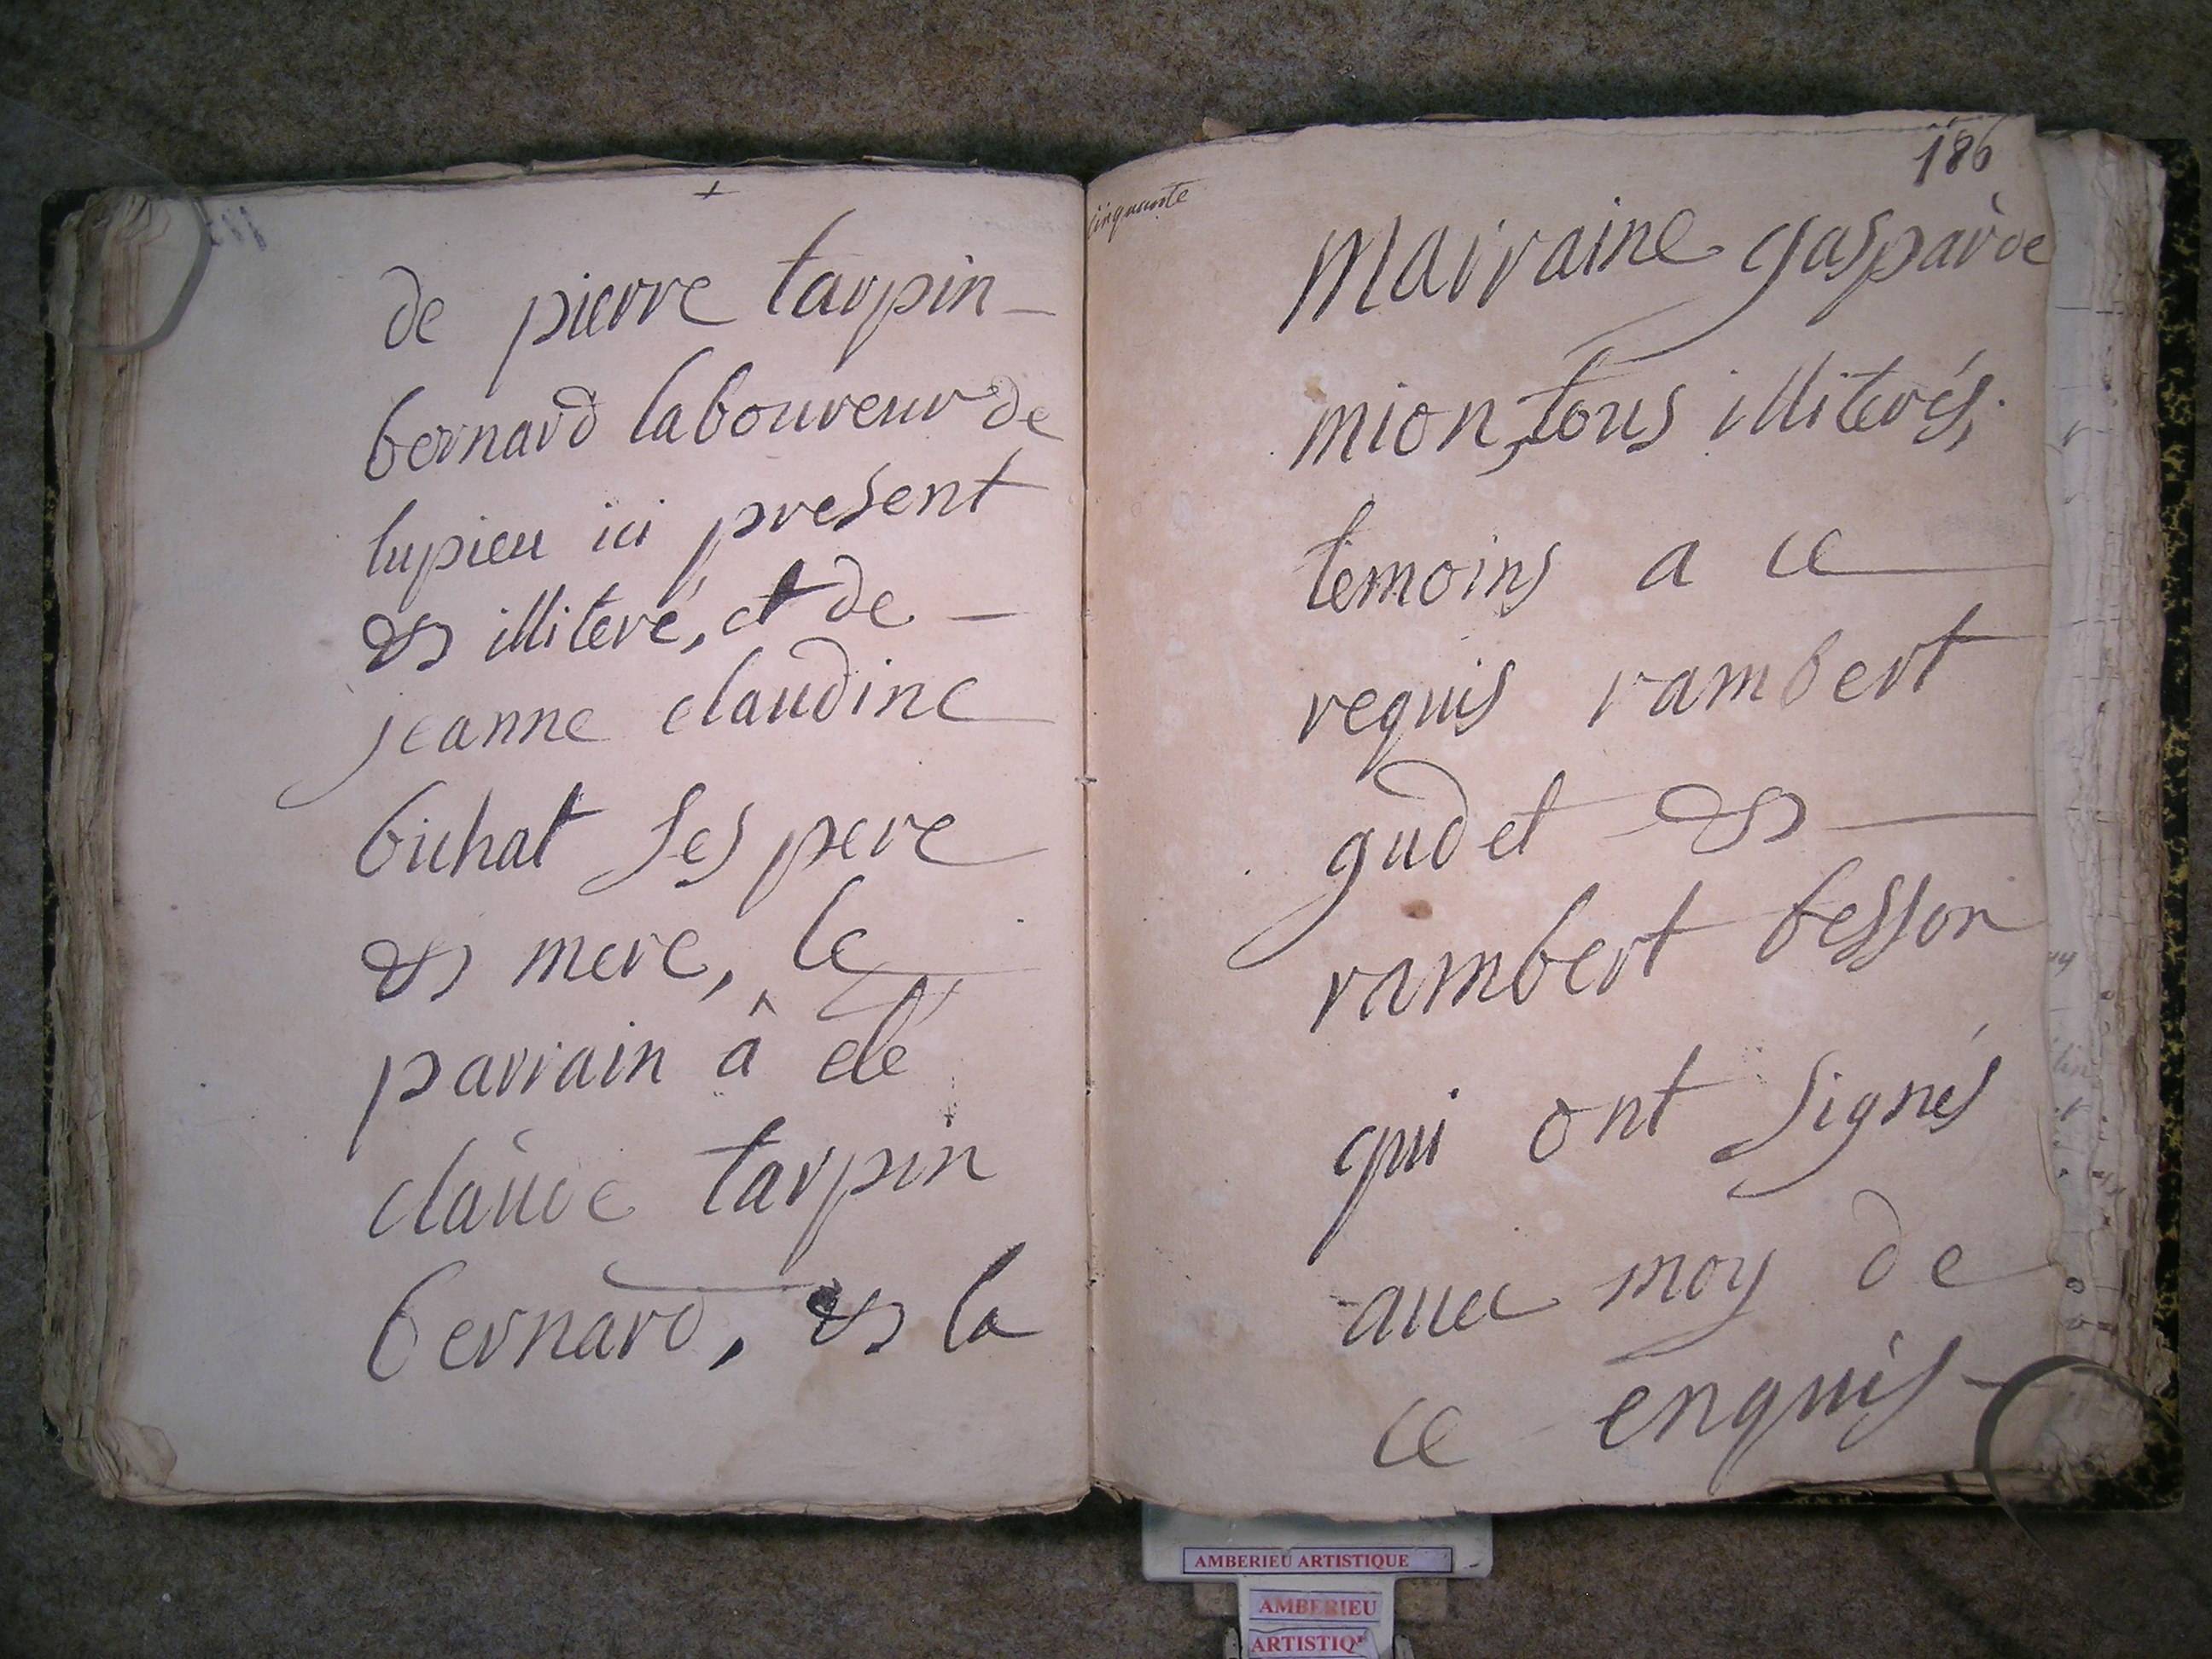 de pierre tarpin
bernard laboureur de
lupieu ici present
& illiteré, et de
jeanne claudine
bichat ses pere
& mere, le
parrain â eté
claude tarpin
bernard, & la
cinquante
186
marraine gasparde
mion, tous illiterés,
temoins a ce
requis rambert
gudet &
rambert besson
qui ont signés
avec moy de
ce enquis
AMBERIEU ARTISTIQUE
AMBERIEU
ARTISTIQ